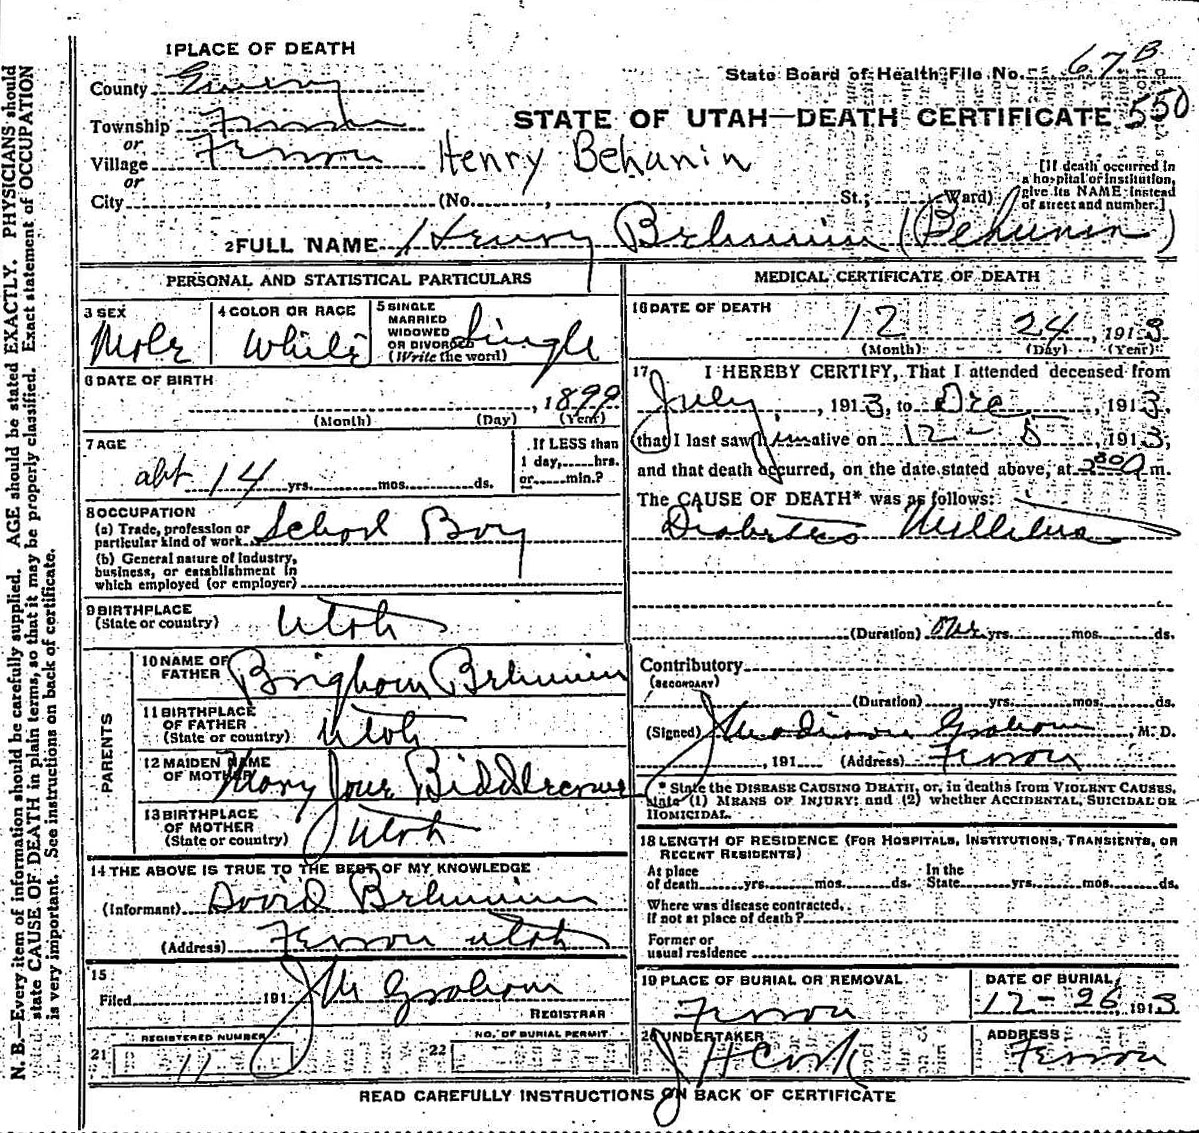 1 PLACE OF DEATH
County Emery
Township Ferron
or
Village Ferron
or
City (No. , St.; Ward)
State Board of Health File No. 67 B
STATE OF UTAH—DEATH CERTIFICATE 550
Henry Behunin
[If death occurred in
a hospital or institution,
give its NAME instead
of street and number.]
2 FULL NAME Henry Behunin (Behunin)
PERSONAL AND STATISTICAL PARTICULARS
3 SEX
Male
4 COLOR OR RACE
White
5 SINGLE
MARRIED
WIDOWED
OR DIVORCED
(Write the word)
Single
6 DATE OF BIRTH
, 1899
(Month) (Day) (Year)
7 AGE
abt 14 yrs. mos. ds.
If LESS than
1 day, hrs.
or min.?
8 OCCUPATION
(a) Trade, profession or
particular kind of work School Boy
(b) General nature of Industry,
business, or establishment in
which employed (or employer)
9 BIRTHPLACE
(State or country) Utah
PARENTS
10 NAME OF
FATHER Brigham Behunin
11 BIRTHPLACE
OF FATHER
(State or country) Utah
12 MAIDEN NAME
OF MOTHER Mary Jane
13 BIRTHPLACE
OF MOTHER
(State or country) Utah
14 THE ABOVE IS TRUE TO THE BEST OF MY KNOWLEDGE
(Informant) David Behunin
(Address) Ferron Utah
15
Filed 191 J M Graham
REGISTRAR
REGISTERED NUMBER
21 11
NO. OF BURIAL PERMIT
22
MEDICAL CERTIFICATE OF DEATH
16 DATE OF DEATH
12 24, 1913
(Month) (Day) (Year)
17 I HEREBY CERTIFY, That I attended deceased from
July, 1913, to Dec, 1913,
that I last saw him alive on 12-5, 1913,
and that death occurred, on the date stated above, at m.
The CAUSE OF DEATH* was as follows:
Diabetes Mellitus
(Duration) One yrs. mos. ds.
Contributory
(SECONDARY)
(Duration) yrs. mos. ds.
(Signed) J Madison Graham, M. D.
, 191 (Address) Ferron
* State the DISEASE CAUSING DEATH, or, in deaths from VIOLENT CAUSES,
state (1) MEANS OF INJURY; and (2) whether ACCIDENTAL, SUICIDAL OR
HOMICIDAL.
18 LENGTH OF RESIDENCE (FOR HOSPITALS, INSTITUTIONS, TRANSIENTS, OR
RECENT RESIDENTS)
At place
of death yrs. mos. ds.
In the
State yrs. mos. ds.
Where was disease contracted,
if not at place of death?
Former or
usual residence
19 PLACE OF BURIAL OR REMOVAL
Ferron
DATE OF BURIAL
12-26, 1913
20 UNDERTAKER
J H Cook
ADDRESS
Ferron
READ CAREFULLY INSTRUCTIONS ON BACK OF CERTIFICATE
N. B.—Every item of information should be carefully supplied. AGE should be stated EXACTLY. PHYSICIANS should
state CAUSE OF DEATH in plain terms, so that it may be properly classified. Exact statement of OCCUPATION
is very important. See instructions on back of certificate.